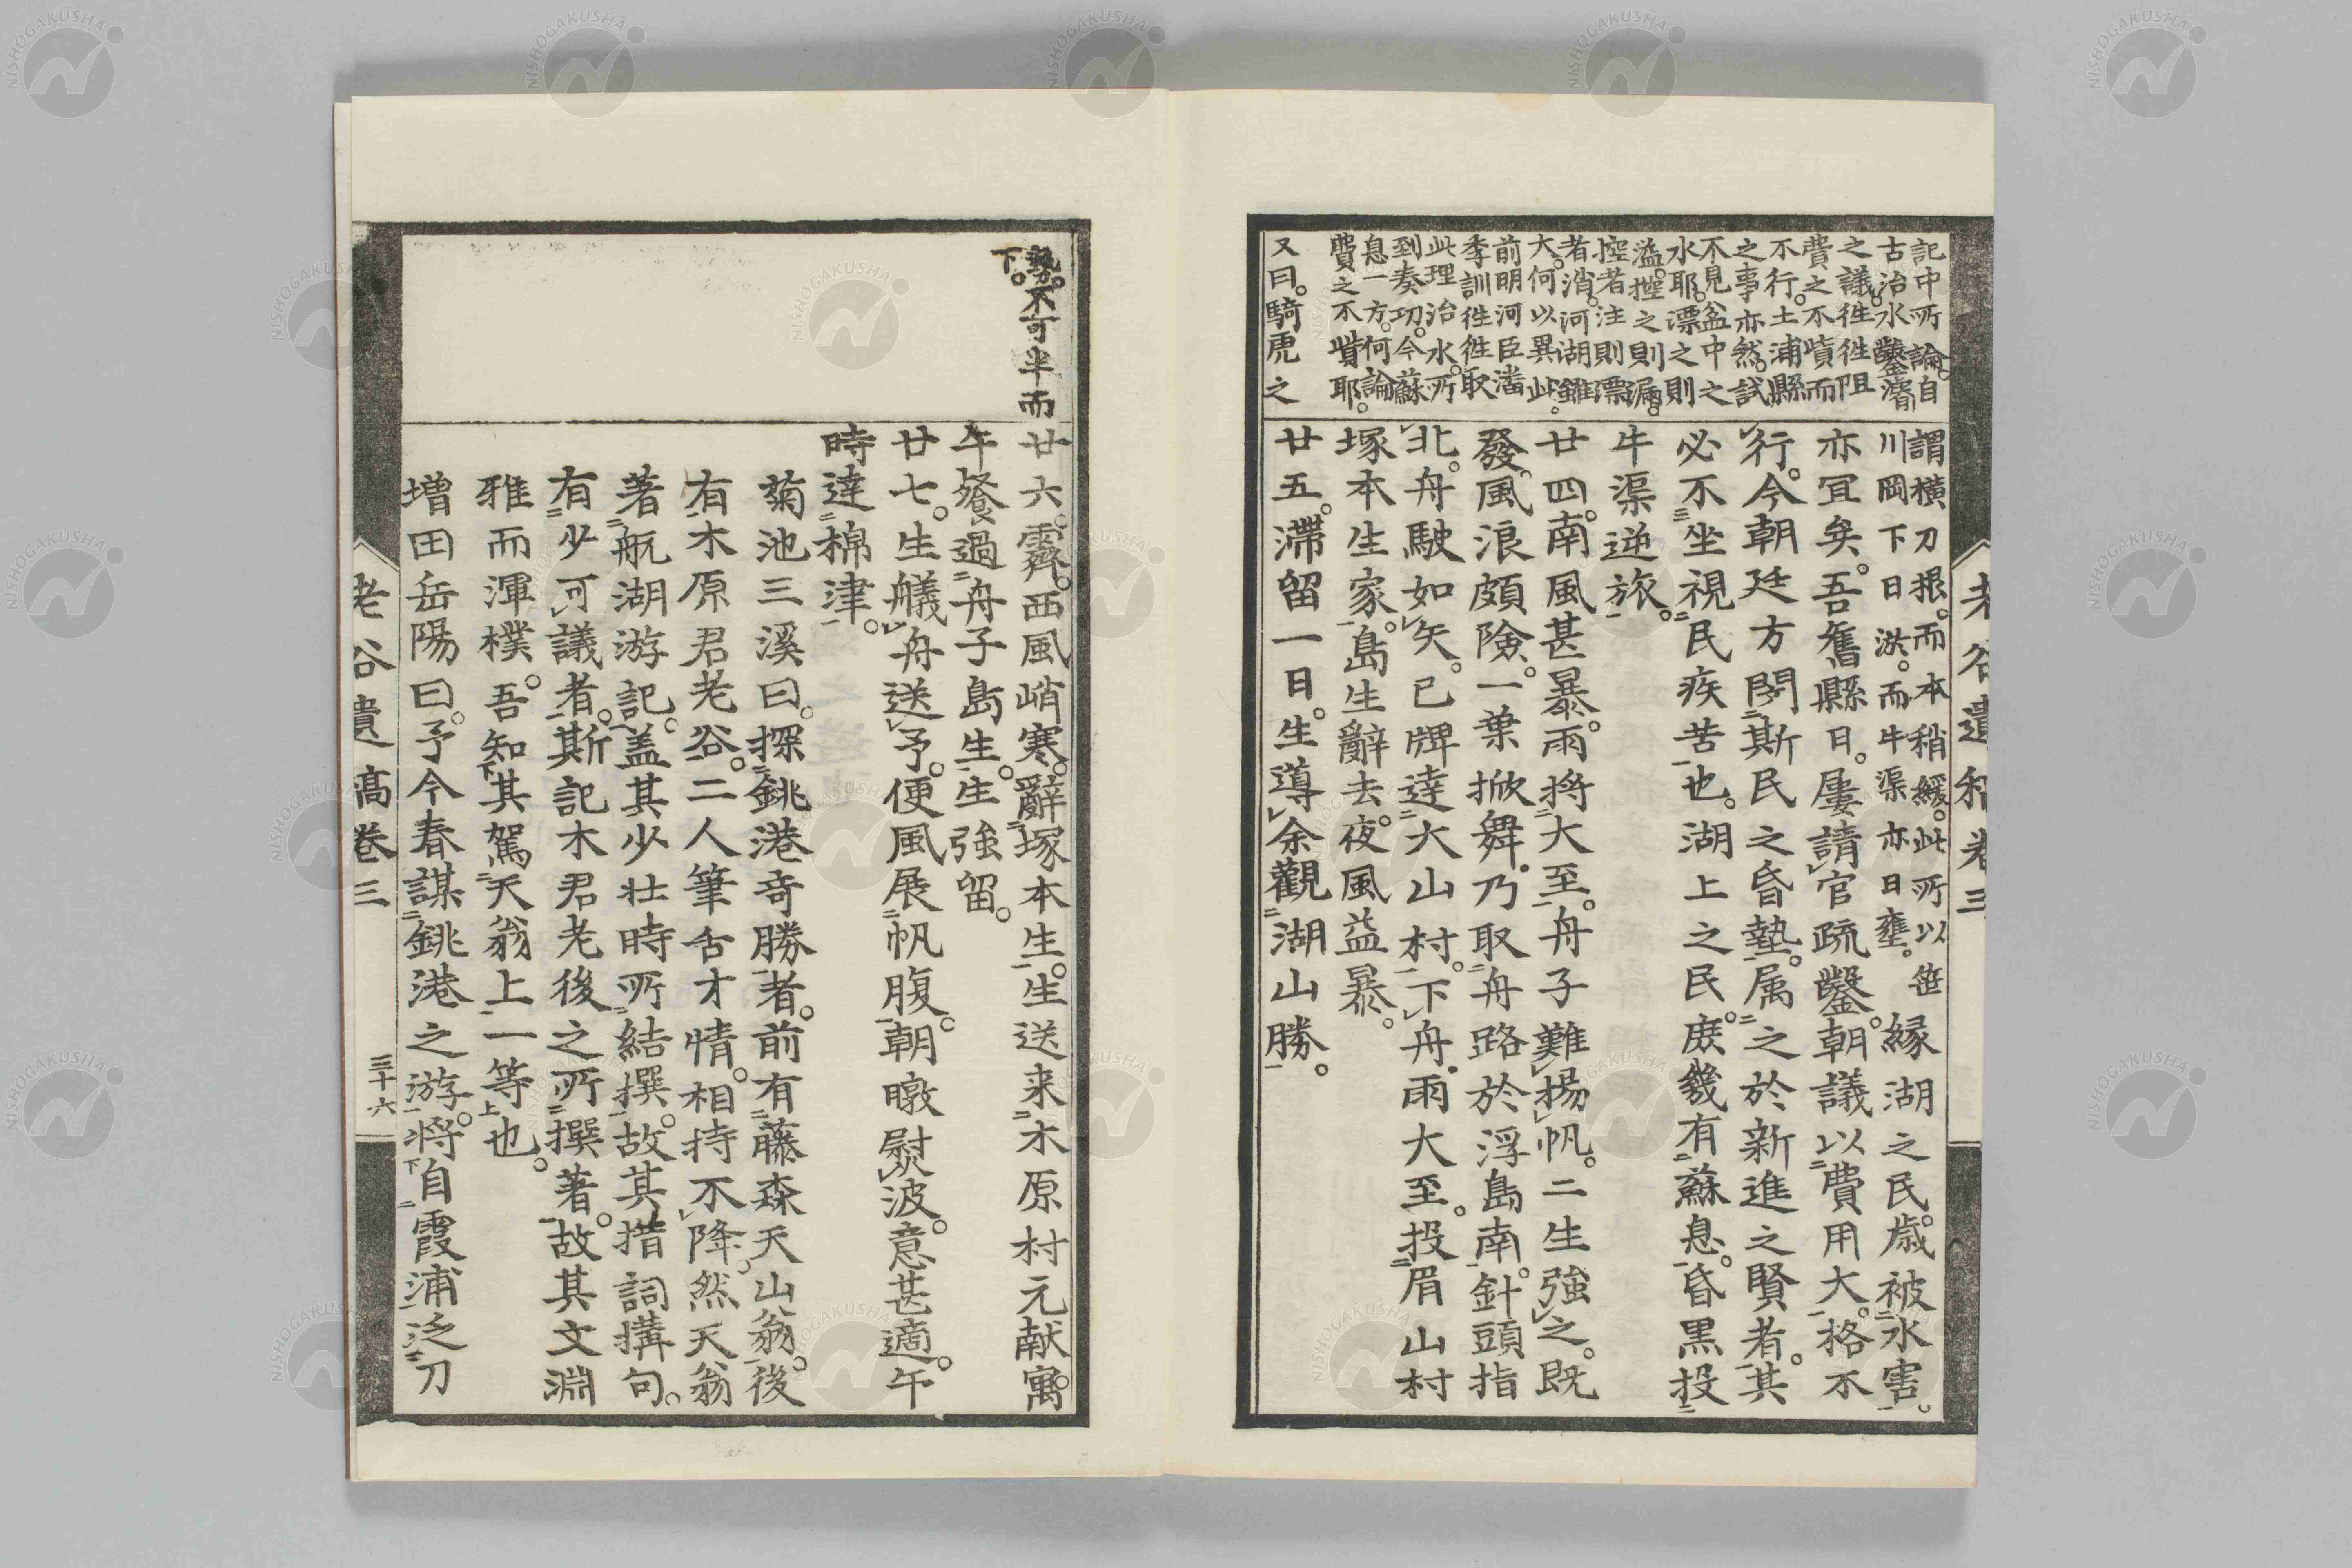 老谷遺稿卷三
記中所論。自
古治水鑿濬
之議。徃徃阻
費之不貲而
不行。土浦縣
之事亦然。試
不見盆中之
水耶。漂之則
溢。控之則漏。
控者注則漂
者涸。河湖雖
大。何以異此。
前明河臣潘
季訓徃徃取
此理治水。所
到奏功。今蘇
息一方。何論
費之不貲耶。
又曰。騎虎之
謂橫刀根。而本稍緩。此所以笹
川岡下日洪。而牛渠亦日壅。
緣湖之民。歳被水害。
亦冝矣。吾舊縣日。屢請官疏鑿。朝議以費用大。格不
行。今朝廷方閔斯民之昏墊。属之於新進之賢者。其
必不坐視民疾苦也。湖上之民。庶幾有蘇息。昏黒投
牛渠逆旅。
廿四。南風甚暴。雨將大至。舟子難揚帆。二生強之。既
發。風浪頗險。一葉掀舞。乃取舟路於浮島南。針頭指
北。舟駛如矢。已牌達大山村。下舟。雨大至。投眉山村
塚本生家。島生辭去。夜風益暴。
廿五。滯留一日。生導余觀湖山勝。
勢。不可半而
下。
廿六。霽。西風峭寒。辭塚本生。生送来木原村元献寓。
午餐過舟子島生。生強留。
廿七。生艤舟送予。便風展帆腹。朝暾熨波。意甚適。午
時達棉津。
菊池三溪曰。探銚港奇勝者。前有藤森天山翁。後
有木原君老谷。二人筆舌才情。相持不降。然天翁
著航湖游記。盖其少壮時所結撰。故其措詞搆句。
有少可議者。斯記木君老後之所撰著。故其文淵
雅而渾樸。吾知其駕天翁上一等也。
増田岳陽曰。予今春謀銚港之游。將自霞浦泛刀
老谷遺稿卷三
三十六